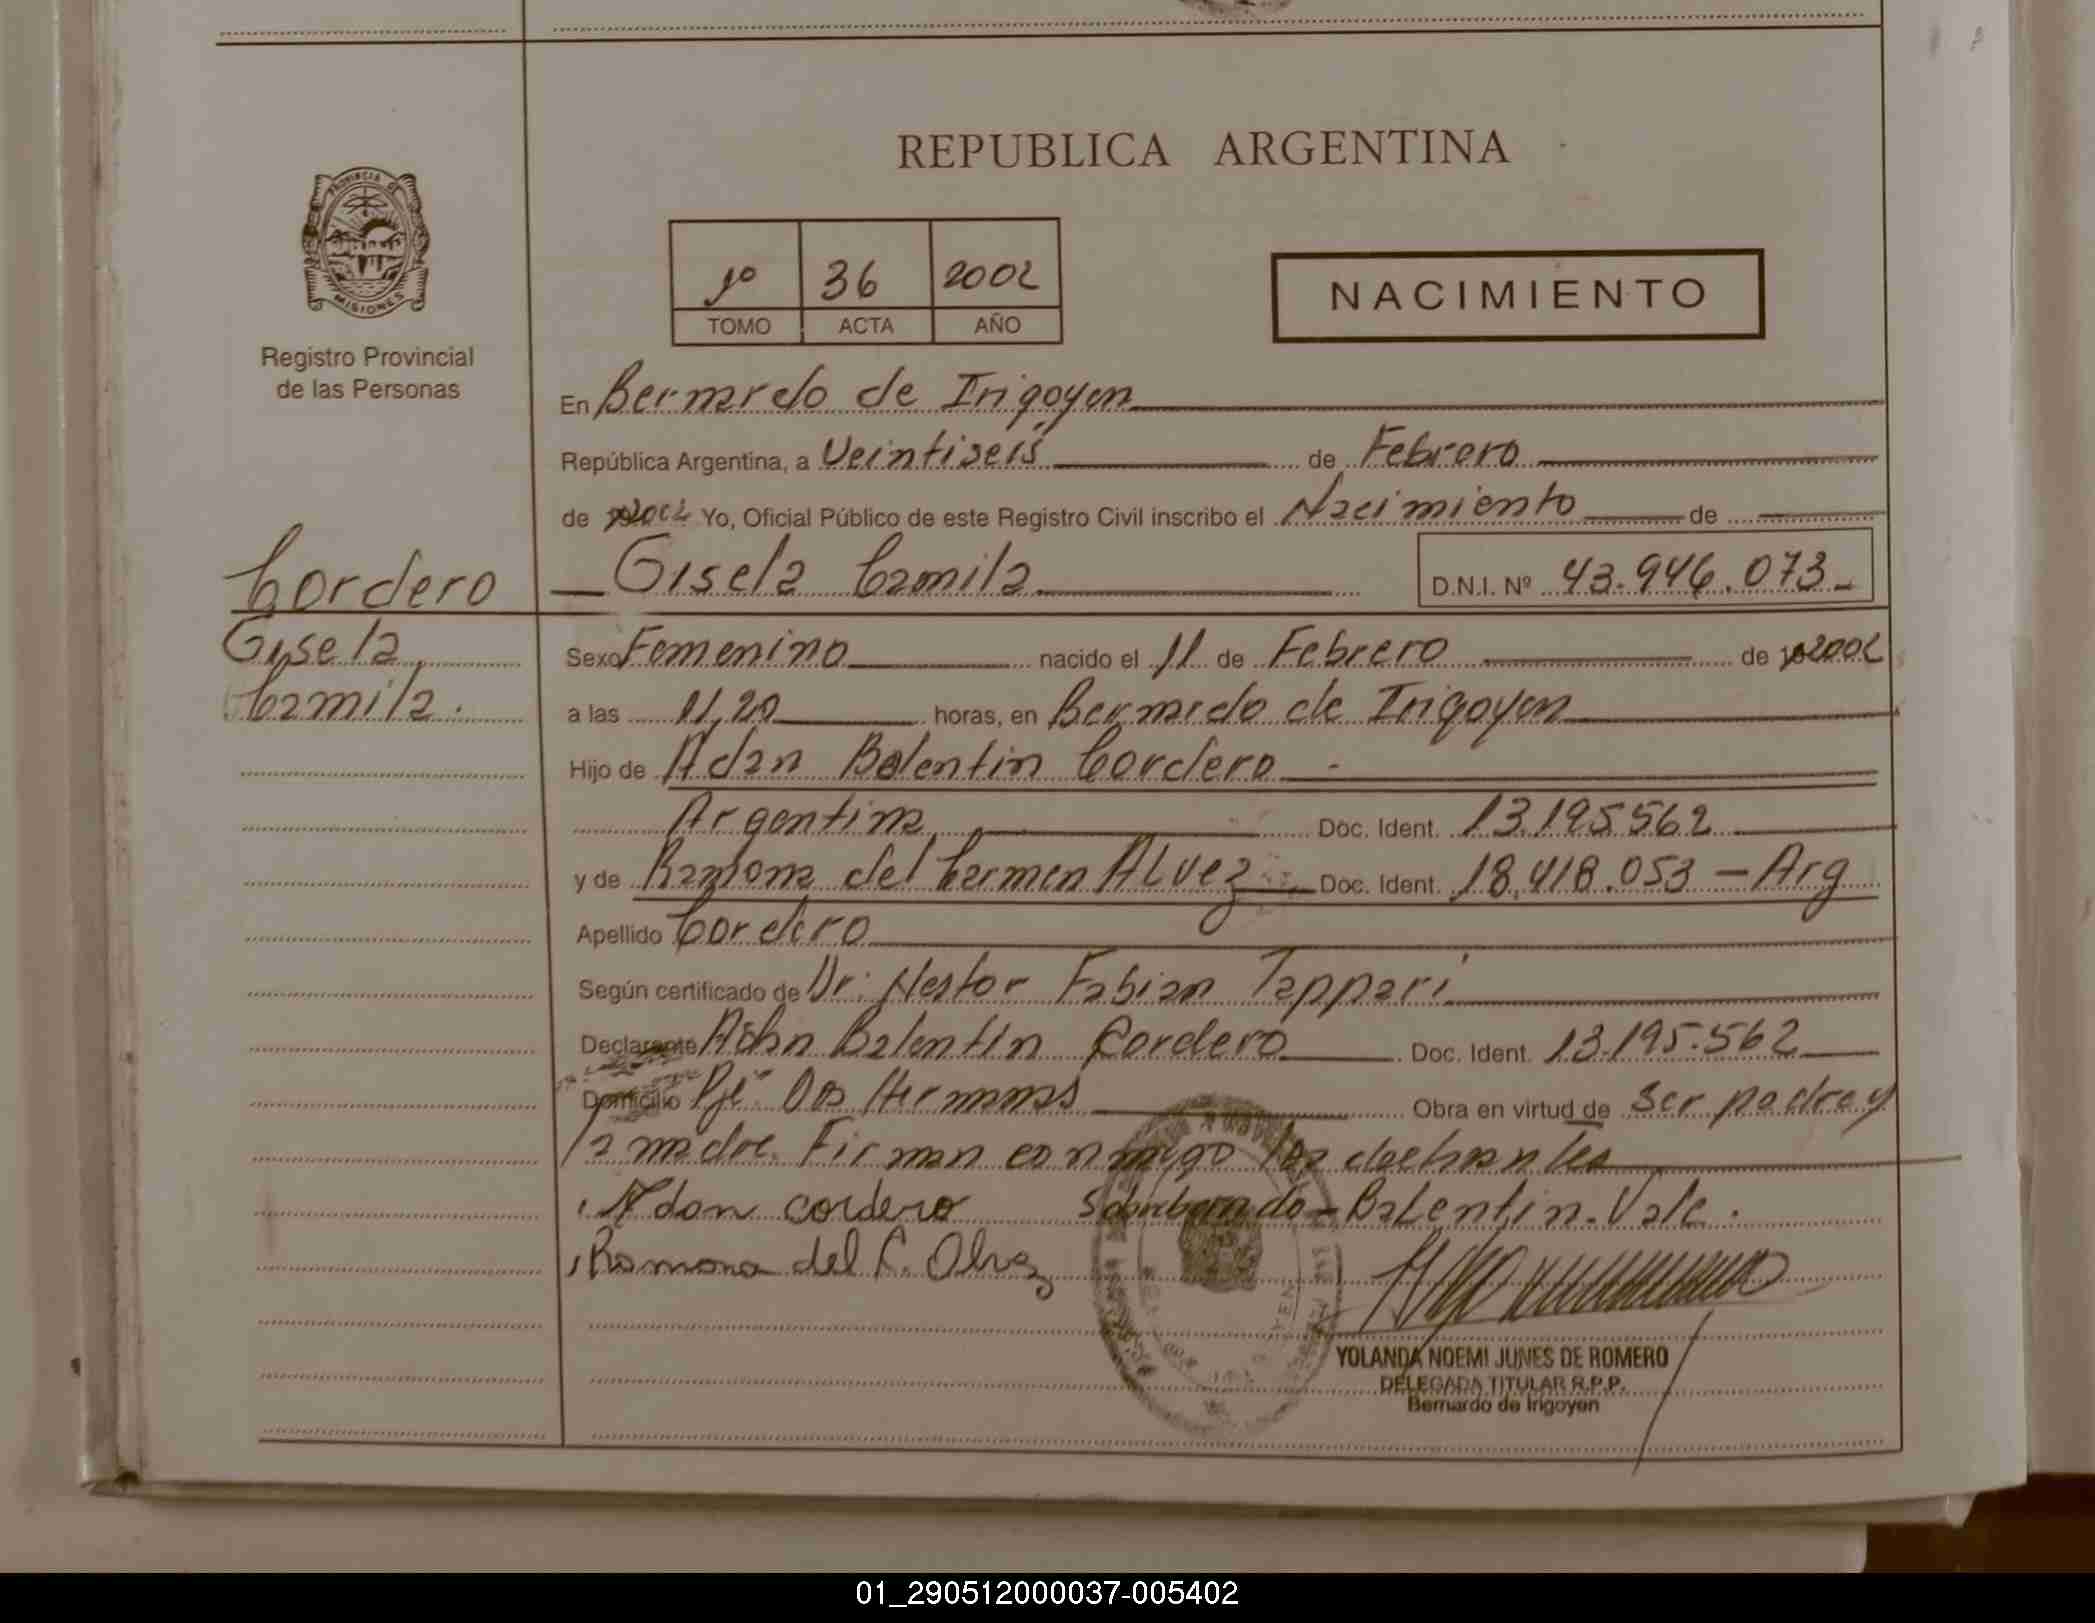 REPUBLICA ARGENTINA
PROVINCIA DE
MISIONES
Registro Provincial
de las Personas
1º 36 2002
TOMO ACTA AÑO
NACIMIENTO
En Bernardo de Irigoyen
República Argentina, a Veintiseis de Febrero
de 2002 Yo, Oficial Público de este Registro Civil inscribo el Nacimiento de
Gisela Camila D.N.I. Nº 43.946.073
Cordero
Gisela
Camila.
Sexo Femenino nacido el 11 de Febrero de 2002
a las 11,20 horas, en Bernardo de Irigoyen
Hijo de Adan Balentin Cordero
Argentina Doc. Ident. 13.195.562
y de Ramona del Carmen Alvez Doc. Ident. 18.418.053 - Arg
Apellido Cordero
Según certificado de Dr: Nestor Fabian Tappari
Declarante Adan Balentin Cordero Doc. Ident. 13.195.562
Domicilio Pje Dos Hermanas Obra en virtud de ser padre y
la madre. Firman conmigo los
Adan cordero - Balentin - Vale.
Ramona del C. Alvez
YOLANDA NOEMI JUNES DE ROMERO
DELEGADA TITULAR R.P.P.
Bernardo de Irigoyen
01_290512000037-005402